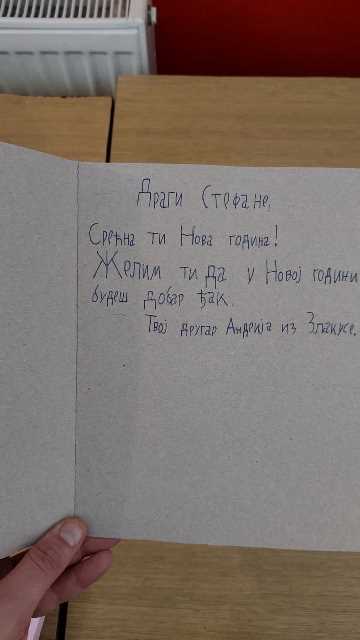 Драги Стефане,
Срећна ти Нова година!
Желим ти да у Новој години
будеш добар ђак.
Твој другар Андрија из Злакусе.